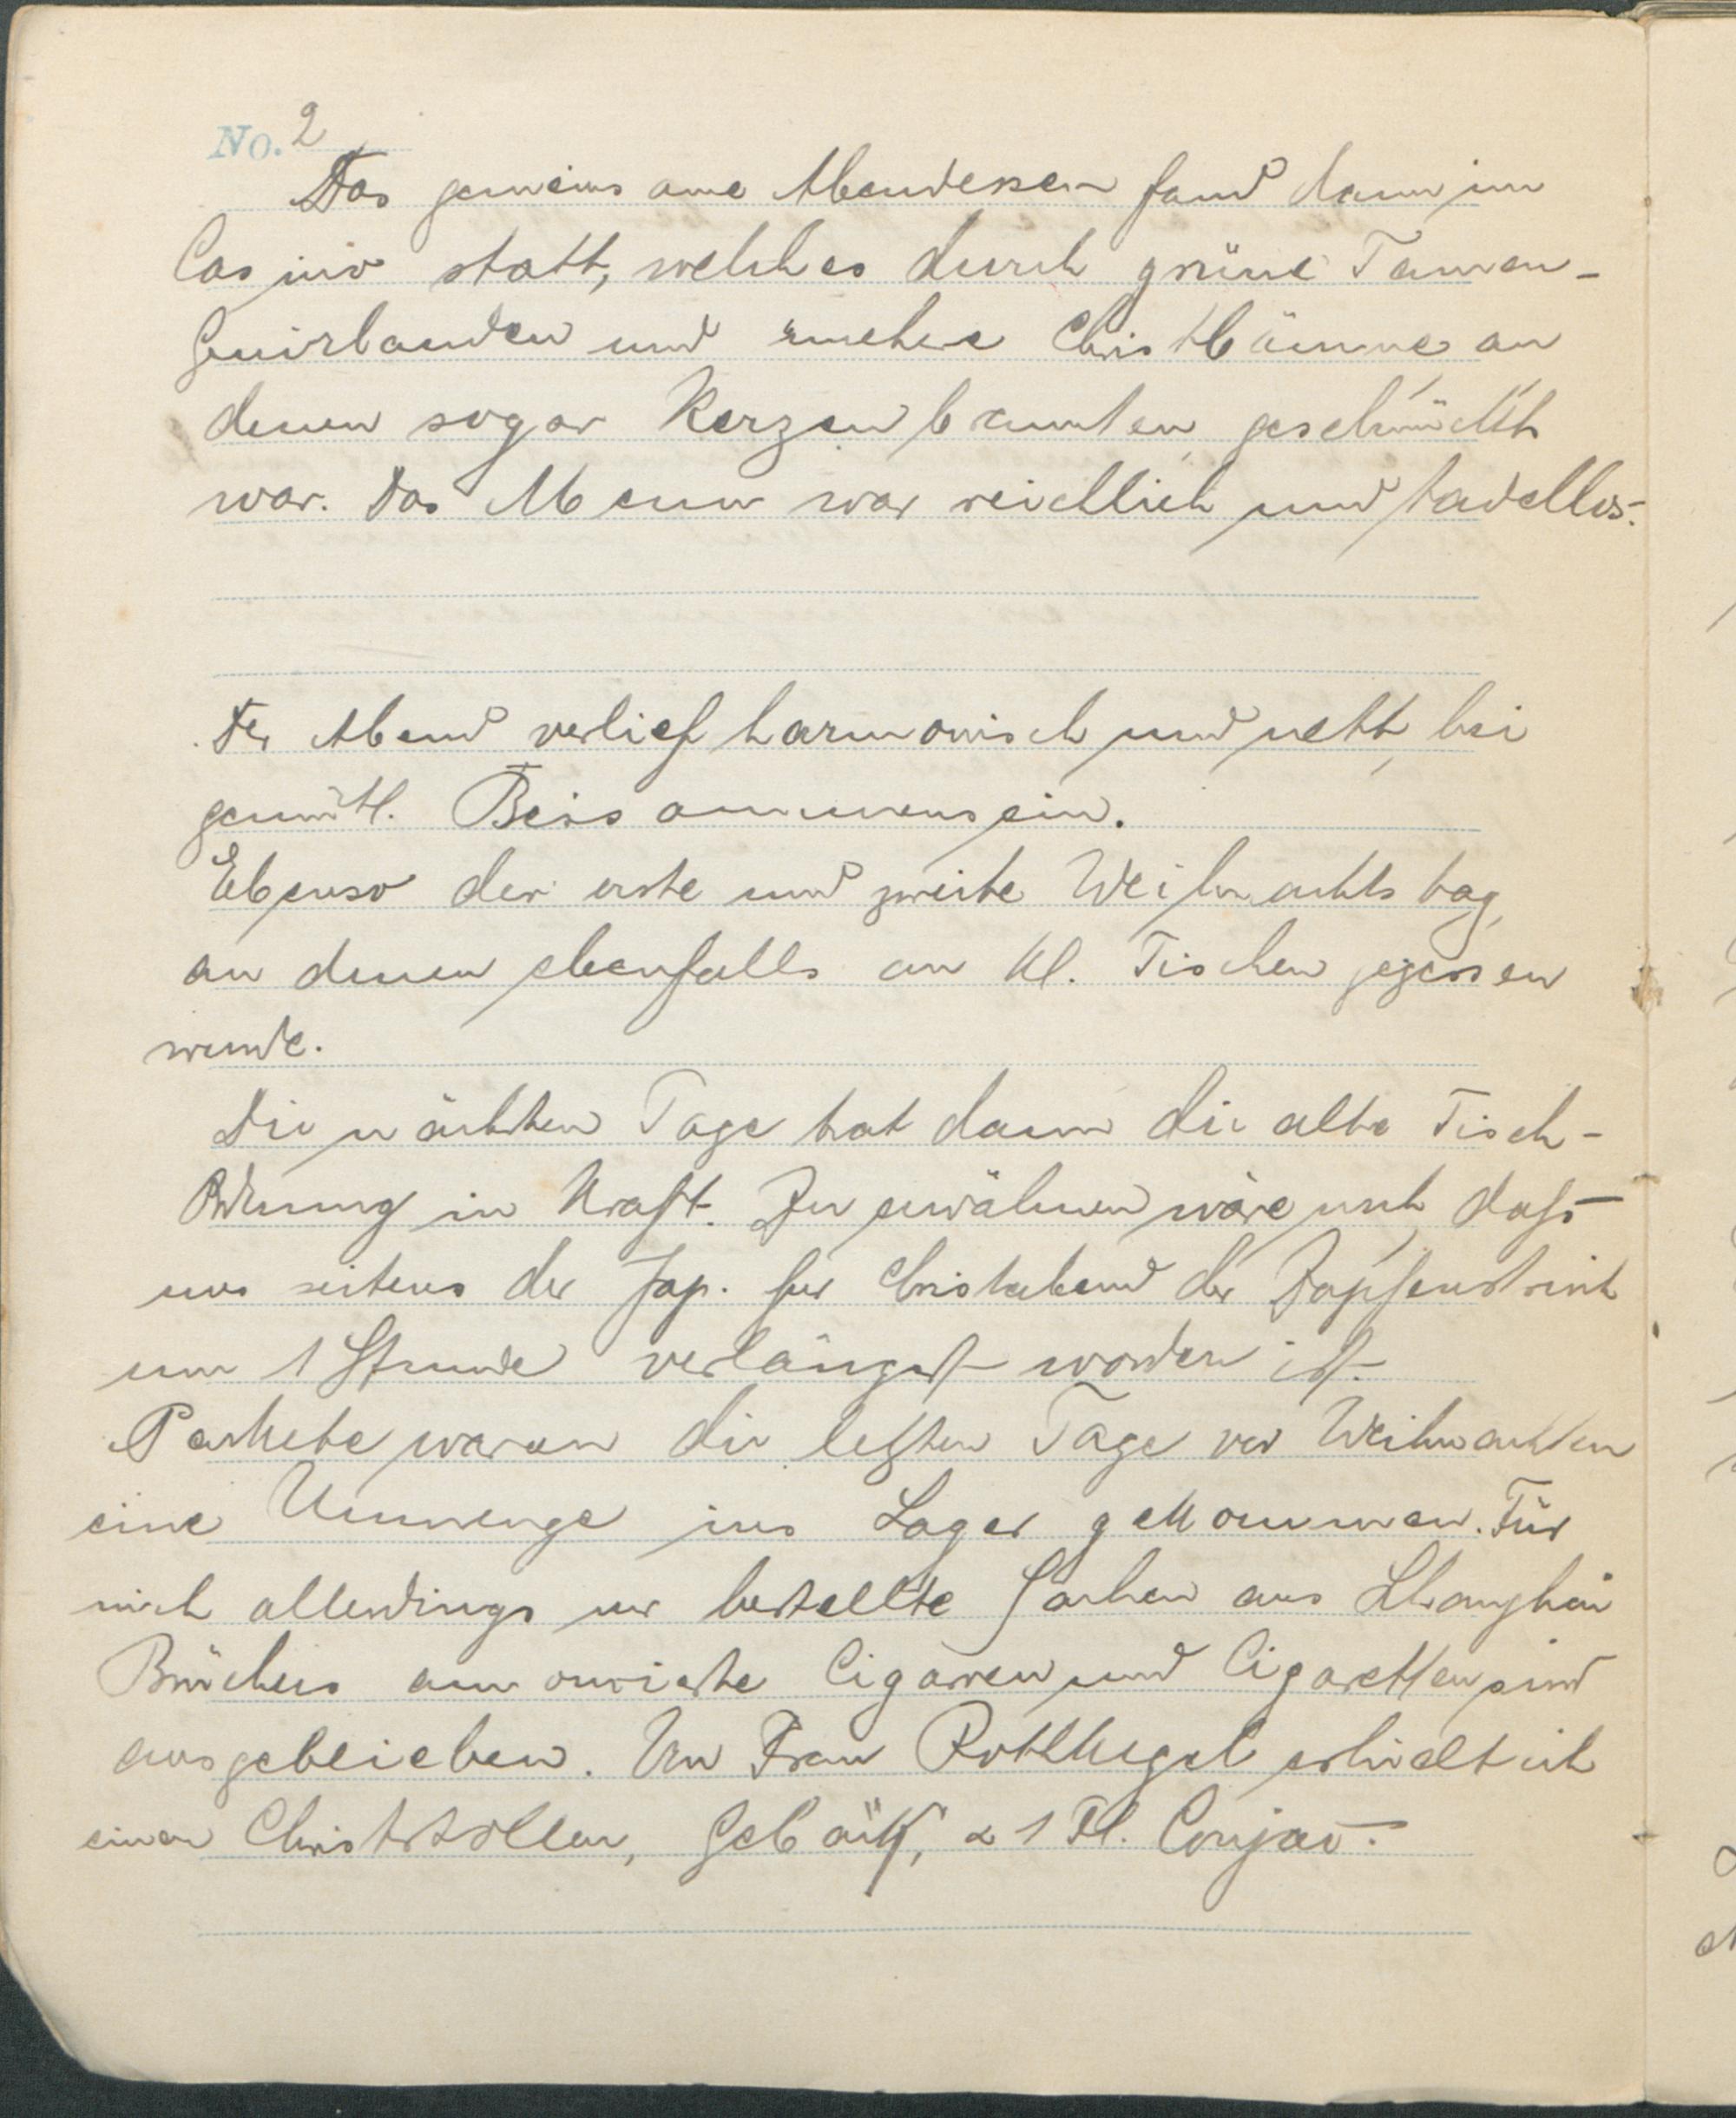 No. 2
Das gemeinsame Abendessen fand dann im
Casino statt, welches durch grüne Tannen-
Guirlanden und mehere Christbäume an
denen sogar Kerzen brannten, geschmückt
war. Das Menu war reichlich und tadellos.
Der Abend verlief harmonisch und nett, bei
gemütl. Beisammensein.
Ebenso der erste und zweite Weihnachtstag,
an denen ebenfalls an kl. Tischen gegessen
wurde.
Die nächsten Tage trat dann die alte Tisch-
Ordnung in Kraft. Zu erwähnen wäre noch, dass
uns seitens der Jap. für Christabend der Zapfenstreich
um 1 Stunde verlängert worden ist.
Packete waren die letzten Tage vor Weihnachten
eine Unmenge ins Lager gekommen. Für
mich allerdings nur bestellte Sachen aus Shanghai
Brüchers annoncierte Cigarren und Cigaretten sind
ausgeblieben. Von Frau Rothkegel erhielt ich
einen Christstollen, Gebäck, & 1 Fl. Conjac.